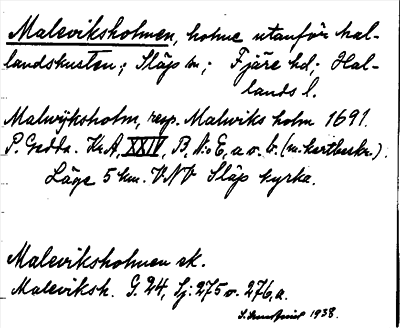 Maleviksholmen, holme utanför hal-
landskusten; Släp sn; Fjäre hd; Hal-
lands l.
Malwijksholm, resp. Malwiks holm 1691.
P. Gedda. Kr.A, XXIV, B, N:o E, a o. b. (m. kartbeskr.).
Läge 5 km. VNV Släp kyrka.
Maleviksholmen sk.
Maleviksh. G. 24, Sj: 275 o. 276, a.
1938.